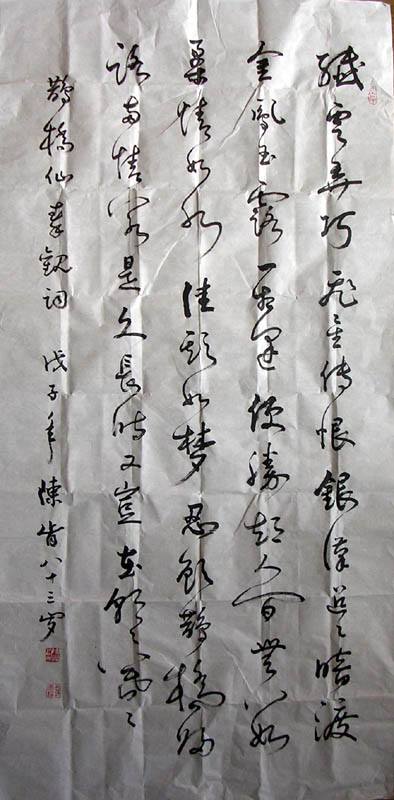 纖雲弄巧飛星傳恨銀漢迢〻暗渡
金風玉露一相逢便勝却人間無數
柔情似水佳期如夢忍顧鵲橋歸
路兩情若是久長時又豈在朝〻暮〻
鵲橋仙秦觀詞 戊子年 陳肯八十三岁